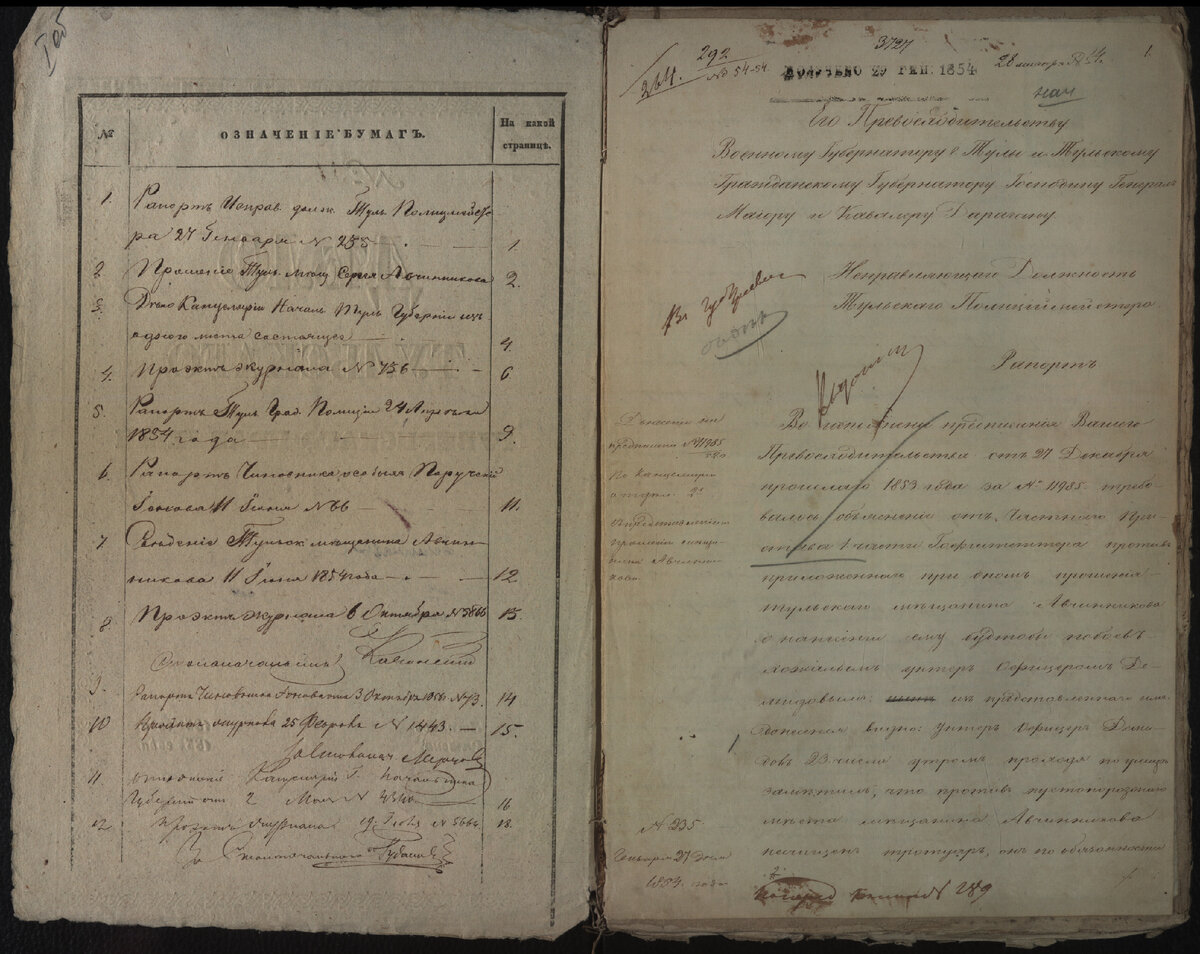 №
ОЗНАЧЕНІЕ БУМАГЪ.
На какой
страницѣ.
1. Рапортъ Исправ. долж. Тул. Полицмейсте
ра 27 Генваря № 235 1.
2. Прошеніе Тул. мѣщ. Сергѣя Авчинникова 2.
3. Дѣло Канцеляріи Началь. Тул. Губерніи изъ
одного листа состоящее 4.
4. Проэктъ журнала № 756 6
5. Рапортъ Тул. Град. Полиціи 24 Апрѣля
1854 года 9.
6. Рапортъ Чиновника особыхъ Порученій
11 Іюня № 66 11.
7. Свѣденіе Тульск. мѣщанина Авчин-
никова 11 Іюня 1854 года 12
8. Проэктъ журнала 6 Октября № 3866 13.
Столоначальникъ
9. Рапортъ Чиновника 3 Октября № 73. 14
10. Проэктъ журнала 25 Февр. № 1443. 15.
11. отношеніе Канцеляріи Г. Начальника
Губерніи отъ 2 Мая № 16
12. Проэктъ журнала 19 Іюля № 5666 18.
За Столоначальника
264.
292
№ 54-54.
3727
ПОЛУЧЕНО 29 ГЕН. 1854
28 января
1
Его Превосходительству
Военному Губернатору г. Тулы и Тульскому
Гражданскому Губернатору Господину Генералъ
Маіору и Кавалеру Дарагану
Исправляющаго Должность
Тульскаго Полиціймейстера
Рапортъ
Донесеніе на
предписаніе № 11985
по канцеляріи
отдѣл. 2го
съ представленіемъ
прошенія мѣща-
нина Авчинни-
кова.
Во исполненіе предписанія Вашего
Превосходительства отъ 27 Декабря
прошлаго 1853 года за № 11985 требо-
валось объясненіе отъ Частнаго При-
става 1 части Гофштеттера противъ
приложеннаго при ономъ прошенія
тульскаго мѣщанина Авчинникова
о нанесеніи ему будтобы побоевъ
унтеръ Офицеромъ Де-
мидовымъ: изъ представленнаго имъ
донесенія видно: Унтеръ Офицеръ Деми-
довъ 23 числа утромъ проходя по улицѣ
замѣтилъ, что противъ пустопорозжаго
мѣста мѣщанина Авчинникова
нечищенъ тротуаръ, онъ по обязанности
№ 235
Генваря 27 дня
1854. года
289